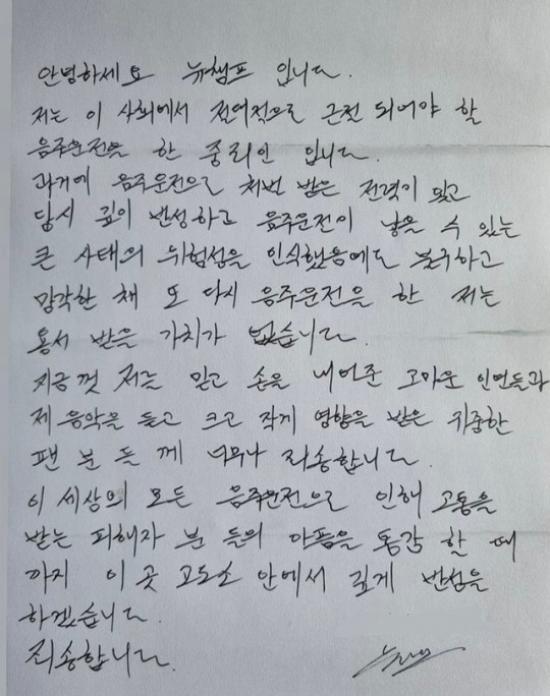 안녕하세요 뉴챔프 입니다.
저는 이 사회에서 전역적으로 근절 되어야 할
음주운전을 한 중죄인 입니다.
과거에 음주운전으로 처벌 받은 전력이 있고
당시 깊이 반성하고 음주운전이 낳을 수 있는
큰 사태의 위험성을 인식했음에도 불구하고
망각한 채 또 다시 음주운전을 한 저는
용서 받을 가치가 없습니다.
지금껏 저를 믿고 손을 내어준 고마운 인연들과
제 음악을 듣고 크고 작게 영향을 받은 귀중한
팬 분 들 께 너무나 죄송합니다.
이 세상의 모든 음주운전으로 인해 고통을
받는 피해자 분 들의 아픔을 통감 할 때
까지 이 곳 교도소 안에서 깊게 반성을
하겠습니다.
죄송합니다.